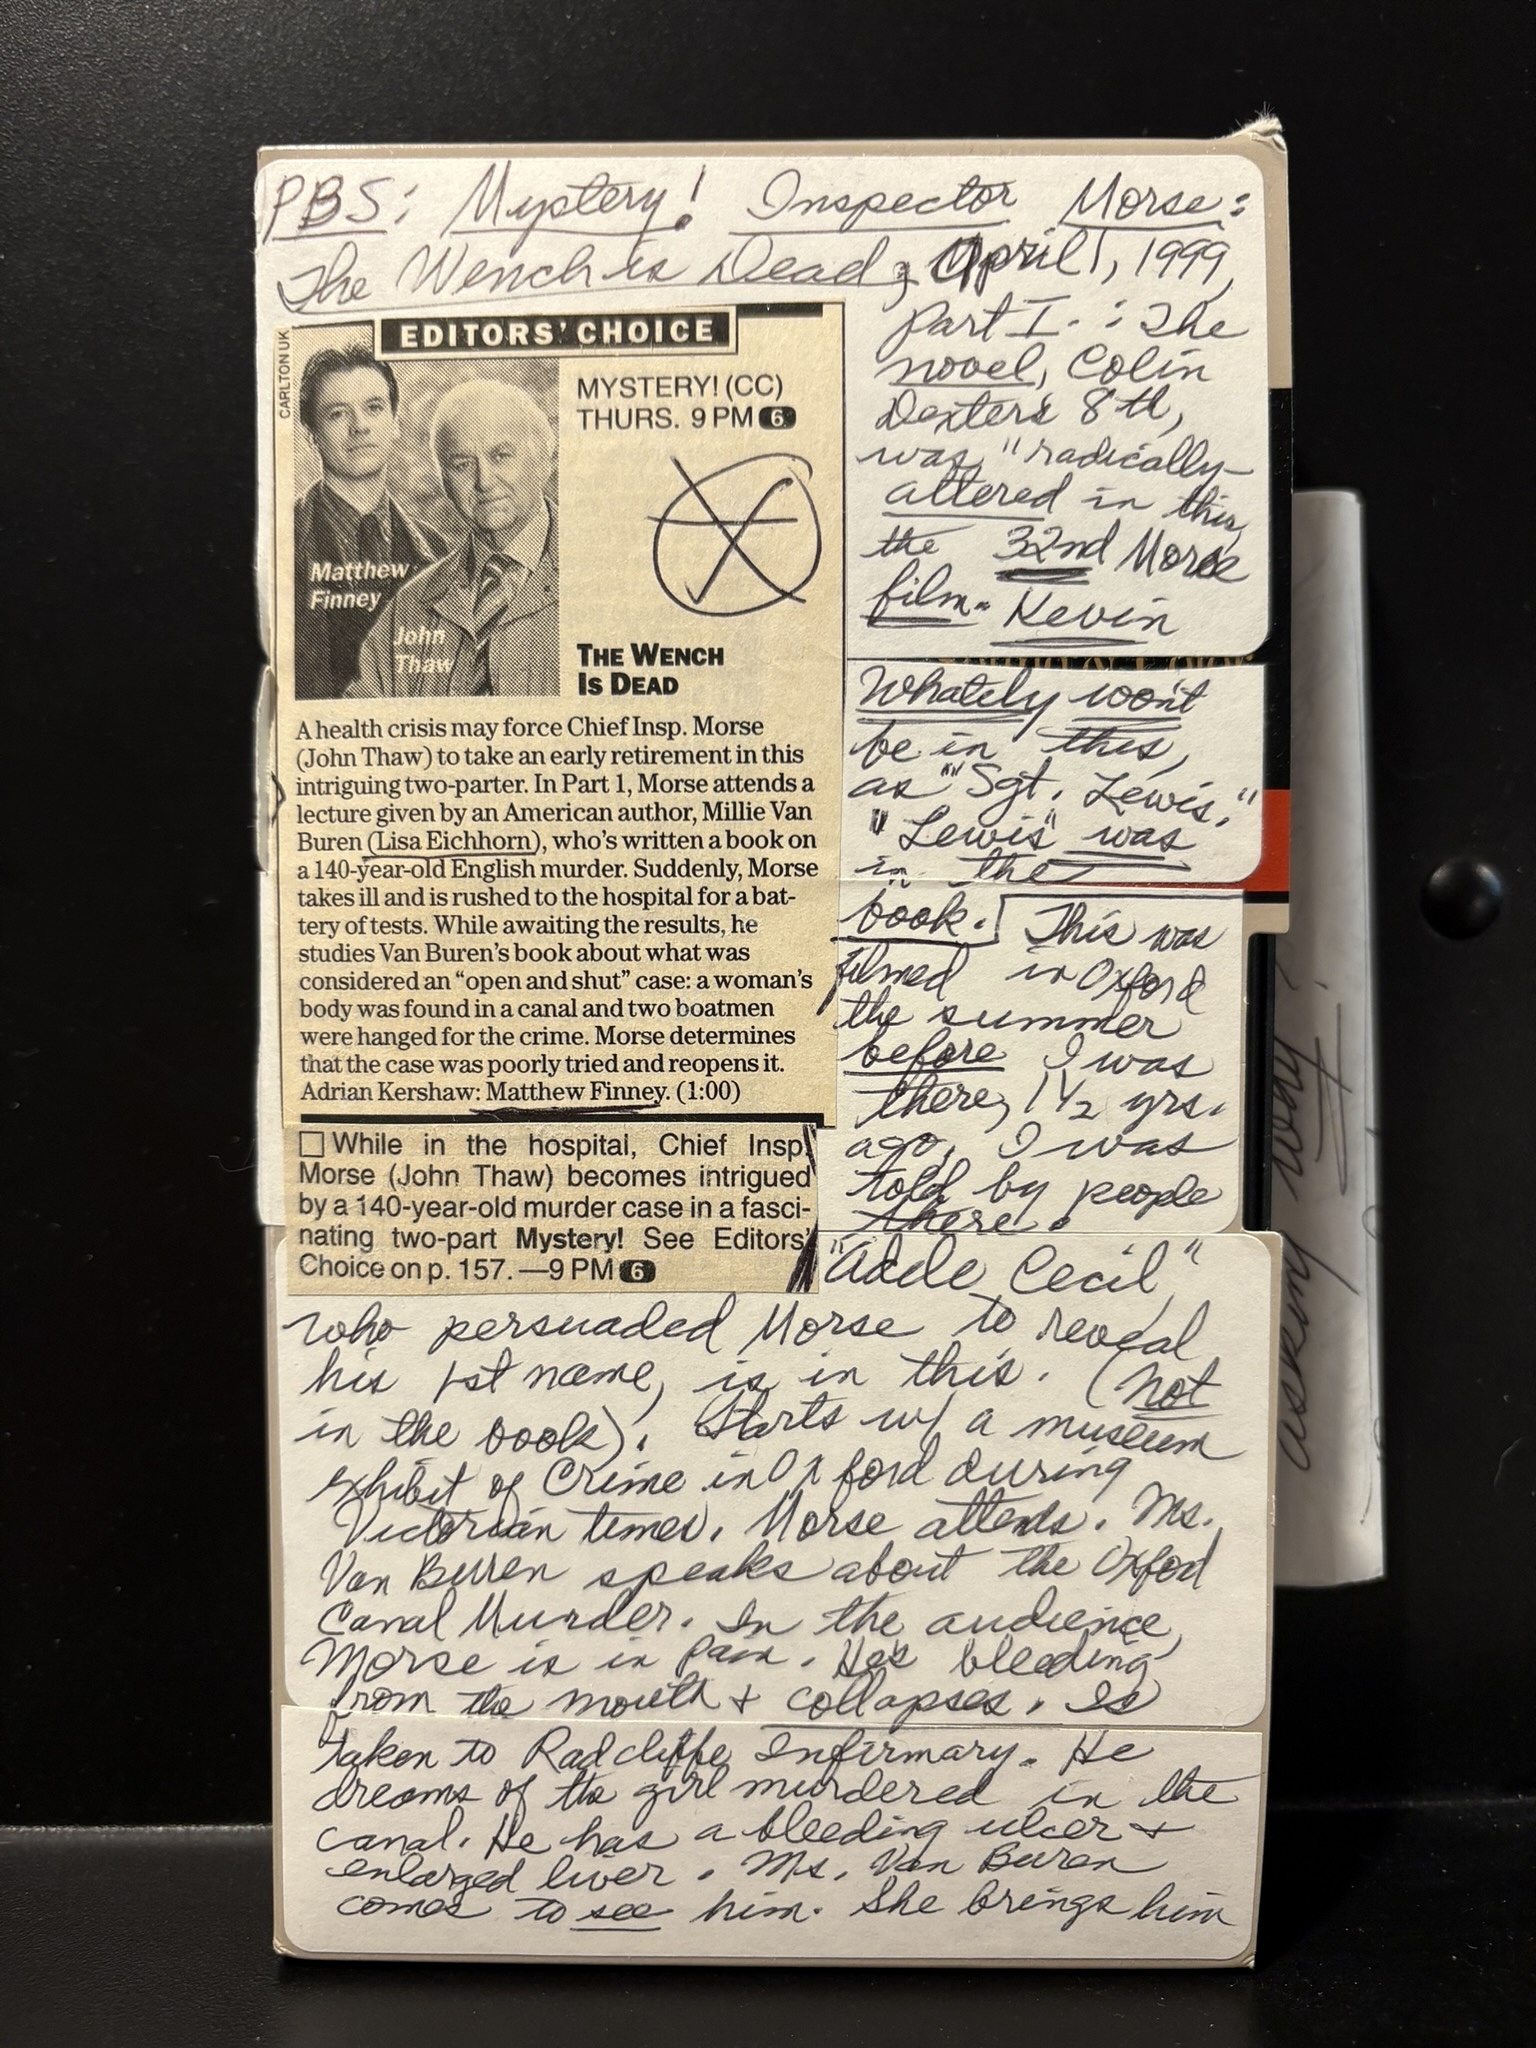 PBS: Mystery! Inspector Morse:
The Wench is Dead, April 1, 1999,
Part I. : The
novel, Colin
Dexter's 8th,
was "radically-
altered in this,
the 32nd Morse
film. Kevin
Whately won't
be in this,
as "Sgt. Lewis,"
"Lewis" was
in the
book. This was
filmed in Oxford
the summer
before I was
there, 1 1/2 yrs.
ago, I was
told by people
there.
CARLTON UK
EDITORS' CHOICE
MYSTERY! (CC)
THURS. 9 PM 6
Matthew
Finney
John
Thaw
THE WENCH
IS DEAD
A health crisis may force Chief Insp. Morse
(John Thaw) to take an early retirement in this
intriguing two-parter. In Part 1, Morse attends a
lecture given by an American author, Millie Van
Buren (Lisa Eichhorn), who's written a book on
a 140-year-old English murder. Suddenly, Morse
takes ill and is rushed to the hospital for a bat-
tery of tests. While awaiting the results, he
studies Van Buren's book about what was
considered an "open and shut" case: a woman's
body was found in a canal and two boatmen
were hanged for the crime. Morse determines
that the case was poorly tried and reopens it.
Adrian Kershaw: Matthew Finney. (1:00)
While in the hospital, Chief Insp.
Morse (John Thaw) becomes intrigued
by a 140-year-old murder case in a fasci-
nating two-part Mystery! See Editors'
Choice on p. 157.—9 PM 6
"Adele Cecil,"
who persuaded Morse to reveal
his 1st name, is in this. (Not
in the book). Starts w/ a museum
exhibit of Crime in Oxford during
Victorian times. Morse attends. Ms.
Van Buren speaks about the Oxford
Canal Murder. In the audience,
Morse is in pain. He's bleeding
from the mouth + collapses. Is
taken to Radcliffe Infirmary. He
dreams of the girl murdered in the
canal. He has a bleeding ulcer +
enlarged liver. Ms. Van Buren
comes to see him. She brings him
asking why